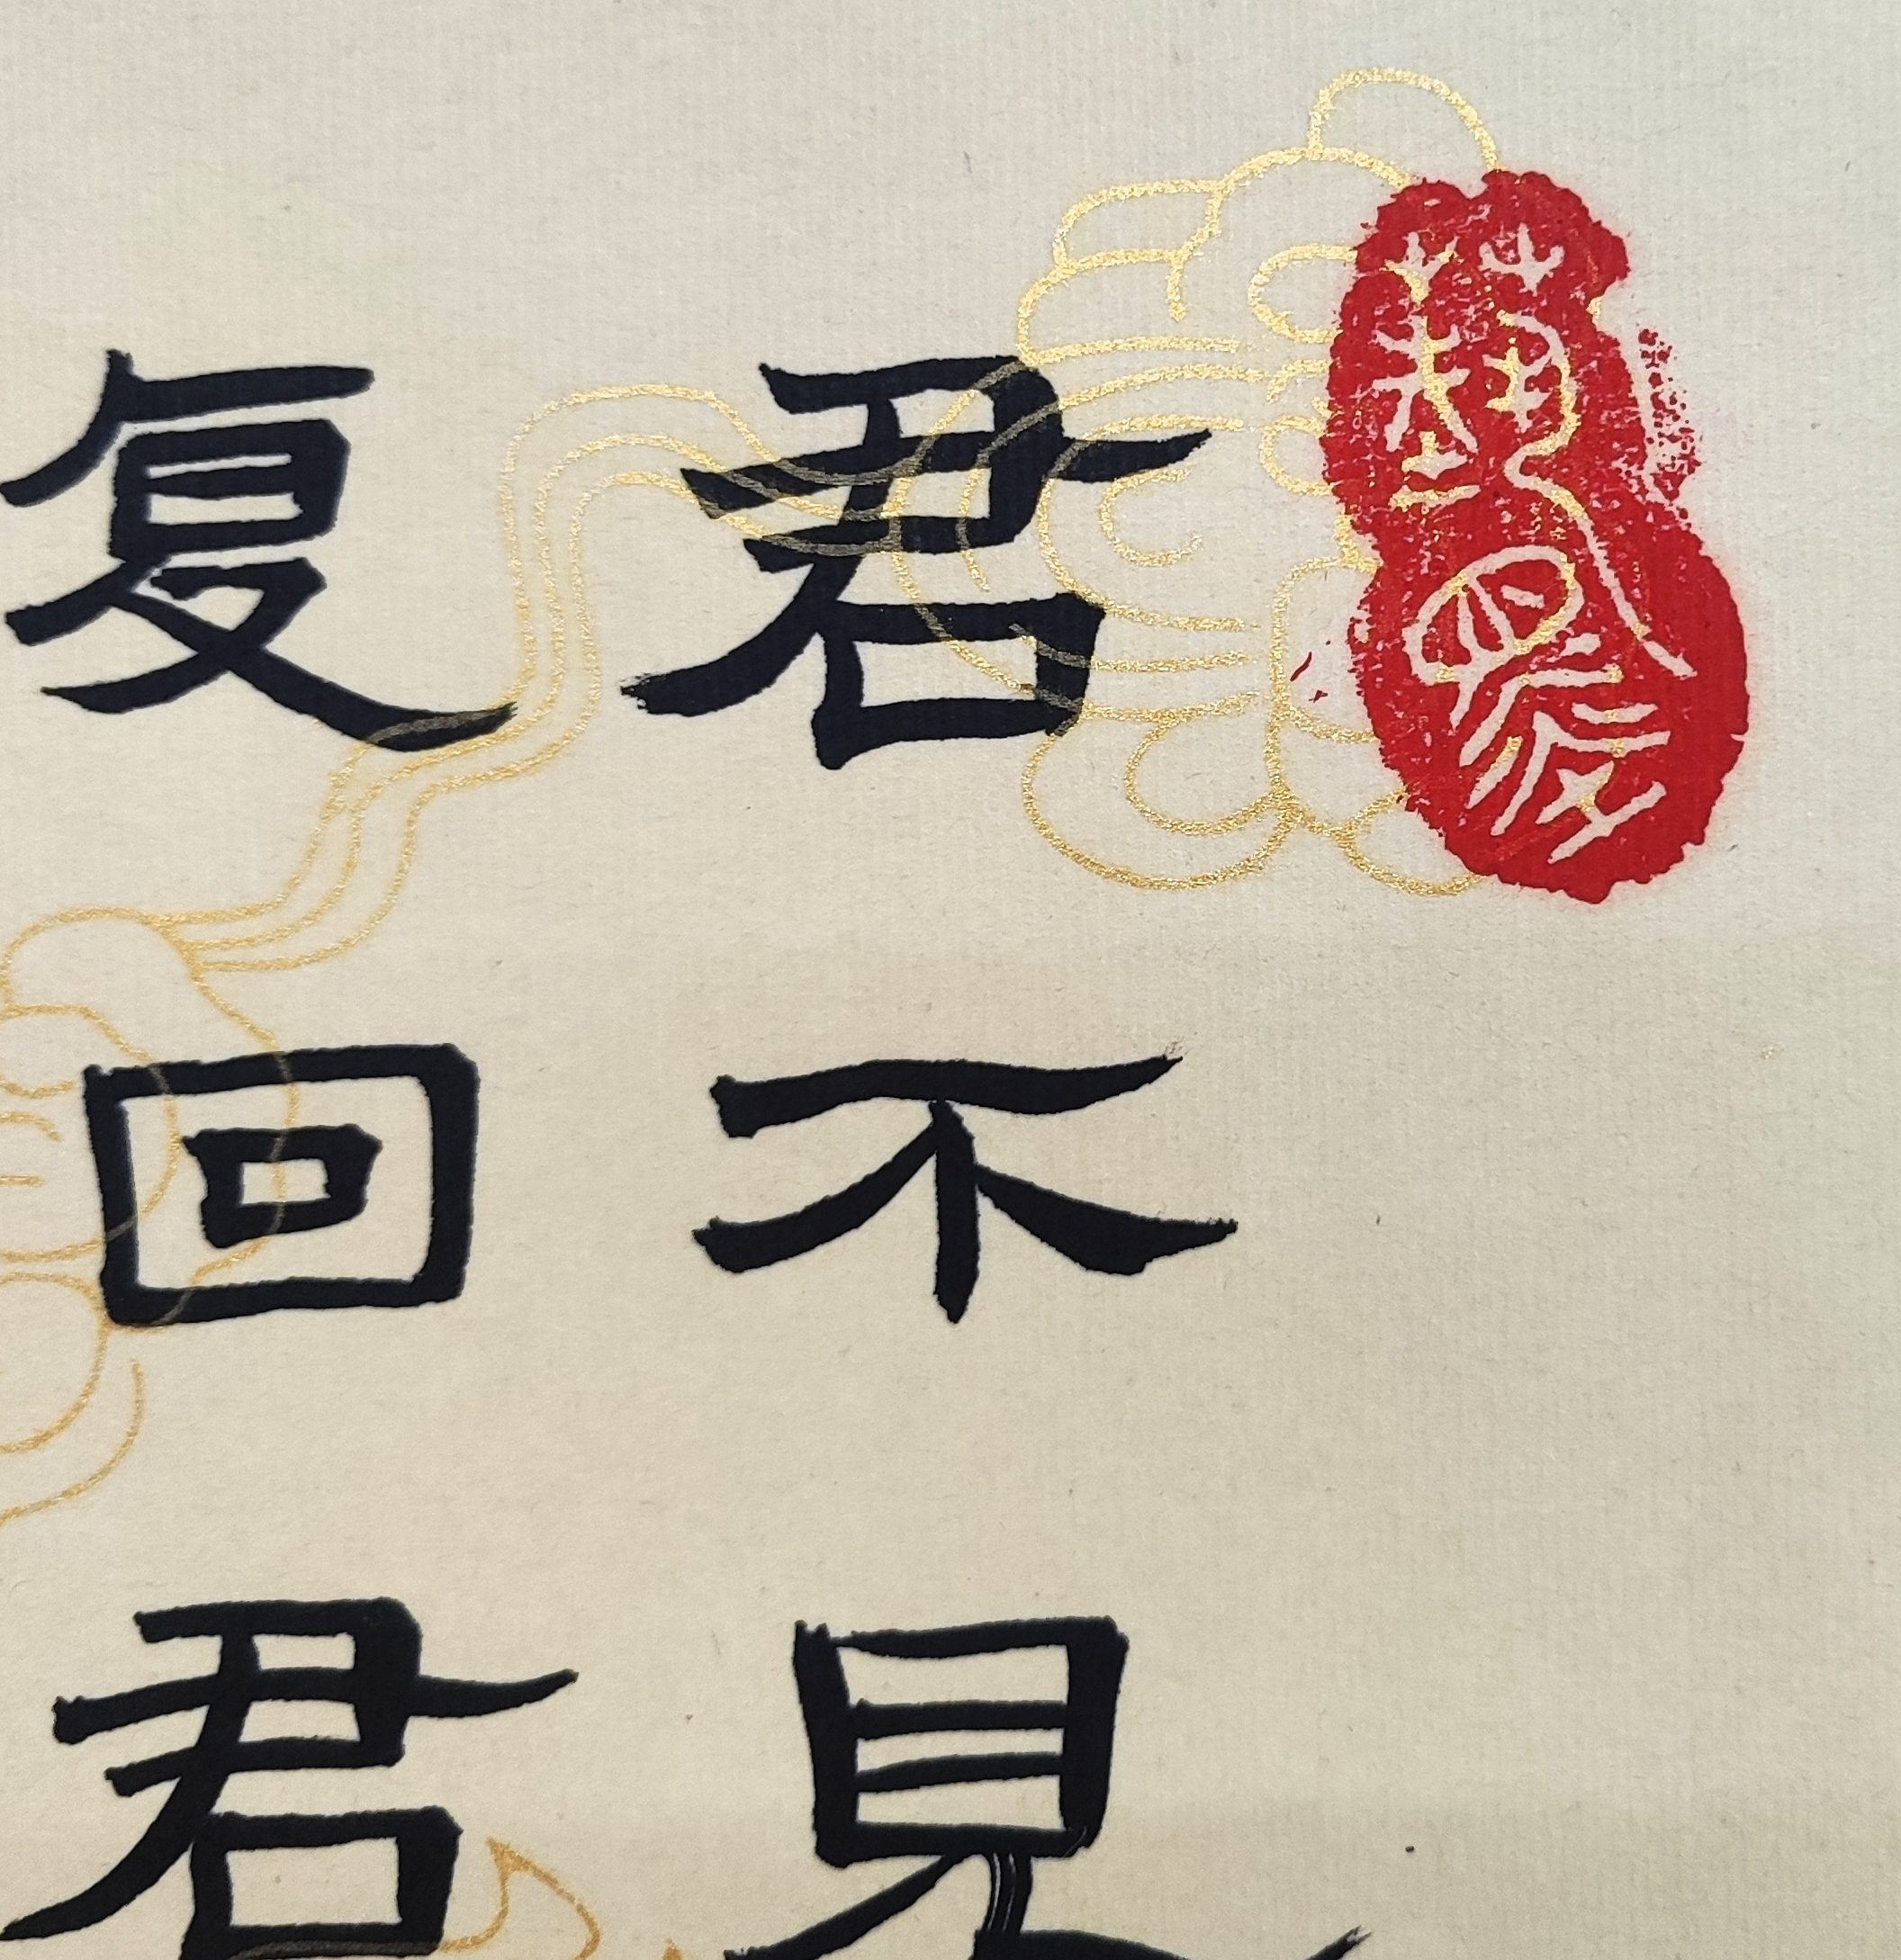 君不見
复回君